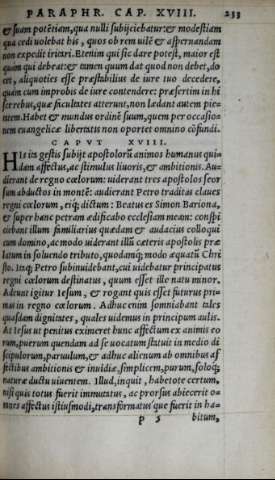 PARAPHR. CAP. XVIII. 233
& suam potẽtiam, qua nulli subijciebatur: & modestiam
qua cedi uolebat his, quos ob rem uilẽ & aspernandam
non expedit irritari. Etenim qui sic dare potest, maior est
quàm qui debeat: & tamen quum dat quod non debet, do
cet, aliquoties esse præstabilius de iure suo decedere,
quàm cum improbis de iure contendere: præsertim in hi
sce rebus, quæ facultates atterunt, non lædant autem pie-
tatem. Habet & mundus ordinẽ suum, quem per occasio-
nem euangelicæ libertatis non oportet omnino cõfundi.
CAPVT XVIII.
HIs ita gestis subijt apostolorũ animos humanus qui-
dam affectus, ac stimulus liuoris, & ambitionis. Au-
dierant de regno cœlorum: uiderant tres apostolos seor
sum abductos in montẽ: audierant Petro traditas claues
regni cœlorum, eiq; dictum: Beatus es Simon Bariona,
& super hanc petram ædificabo ecclesiam meam: conspi
ciebant illum familiarius quædam & audacius colloqui
cum domino, ac modo uiderant illũ cæteris apostolis præ
latum in soluendo tributo, quodamq; modo æquatũ Chri
sto. Itaq; Petro subinuidebant, cui uidebatur principatus
regni cœlorum destinatus, quum esset ille natu minor.
Adeunt igitur Iesum, & rogant quis esset futurus pri-
mas in regno cœlorum. Adhuc enim somniabant tales
quasdam dignitates, quales uidemus in principum aulis.
At Iesus ut penitus eximeret hunc affectum ex animis eo
rum, puerum quendam ad se uocatum statuit in medio di
scipulorum, paruulum, & adhuc alienum ab omnibus af
fectibus ambitionis & inuidiæ, simplicem, purum, soloq;
naturæ ductu uiuentem. Illud, inquit, habetote certum,
nisi quis totus fuerit immutatus, ac prorsus abiecerit o-
mnes affectus istiusmodi, transformatusque fuerit in ha-
p 5 bitum,